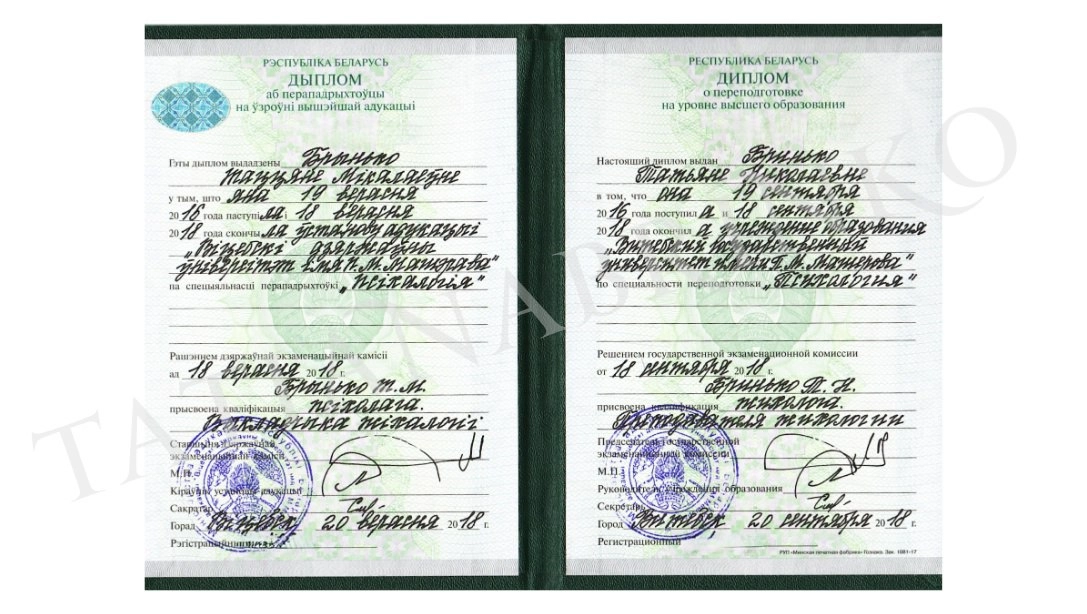 РЭСПУБЛІКА БЕЛАРУСЬ
ДЫПЛОМ
аб перападрыхтоўцы
на ўзроўні вышэйшай адукацыі
Гэты дыплом выдадзены Брынько
Таццяне Мікалаеўне
у тым, што яна 19 верасня
2016 года паступіла і 18 верасня
2018 года скончыла ўстанову адукацыі
„Віцебскі дзяржаўны
ўніверсітэт імя П. М. Машэрава"
па спецыяльнасці перападрыхтоўкі „Псіхалогія"
Рашэннем дзяржаўнай экзаменацыйнай камісіі
ад 18 верасня 2018 г.
Брынько Т. М.
прысвоена кваліфікацыя псіхолага.
Выкладчыка псіхалогіі
Старшыня дзяржаўнай
экзаменацыйнай камісіі
М.П.
Кіраўнік установы адукацыі
Сакратар
Горад Віцебск 20 верасня 2018 г.
Рэгістрацыйны
РЕСПУБЛИКА БЕЛАРУСЬ
ДИПЛОМ
о переподготовке
на уровне высшего образования
Настоящий диплом выдан Бринько
Татьяне Николаевне
в том, что она 19 сентября
2016 года поступила и 18 сентября
2018 года окончила учреждение образования
„Витебский государственный
университет имени П. М. Машерова"
по специальности переподготовки „Психология"
Решением государственной экзаменационной комиссии
от 18 сентября 2018 г.
Бринько Т. Н.
присвоена квалификация психолога.
Преподавателя психологии
Председатель государственной
экзаменационной комиссии
М.П.
Руководитель учреждения образования
Секретарь
Город Витебск 20 сентября 2018 г.
Регистрационный
РУП «Минская печатная фабрика» Гознака. Зак. 1081-17